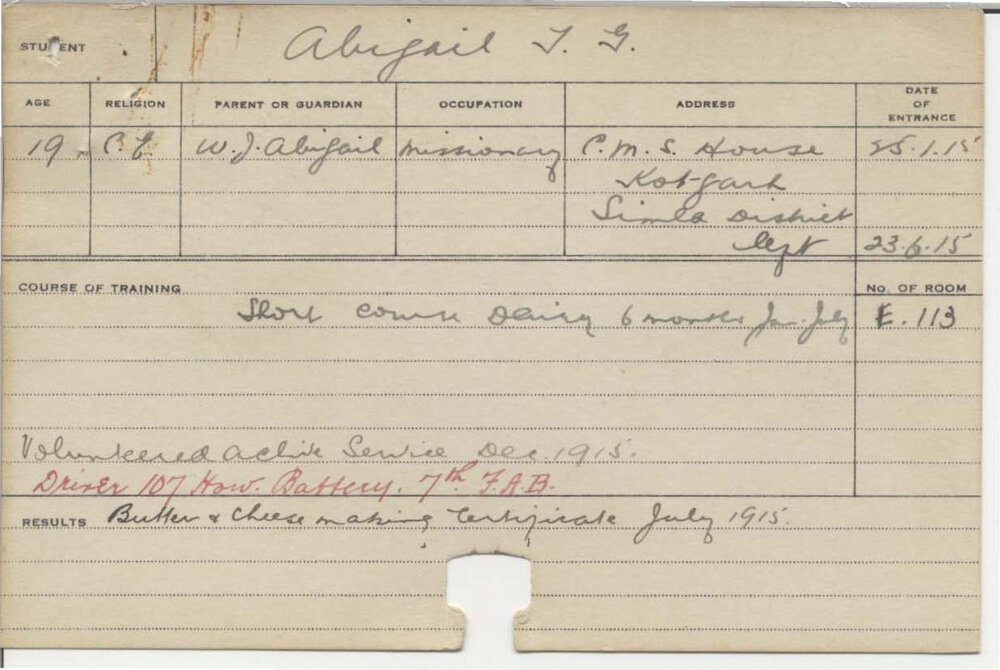 STUDENT Abigail T. G.
AGE RELIGION PARENT OR GUARDIAN OCCUPATION ADDRESS DATE OF ENTRANCE
19 C.E. W. J. Abigail Missionary C. M. S. House 25.1.15
Kotgarh
Simla District
left 23.6.15
COURSE OF TRAINING No. OF ROOM
Short course Dairy 6 months Jan. July E. 113
Volunteered active Service Dec. 1915.
Driver 107 How. Battery. 7th F.A.B.
RESULTS Butter & Cheese making Certificate July 1915.